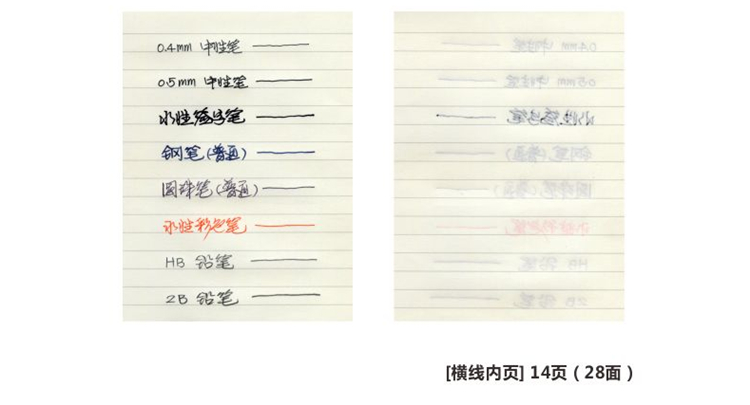 0.4mm 中性笔
0.5mm 中性笔
水性签字笔
钢笔(普通)
圆珠笔(普通)
水性彩色笔
HB 铅笔
2B 铅笔
[横线内页] 14页（28面）